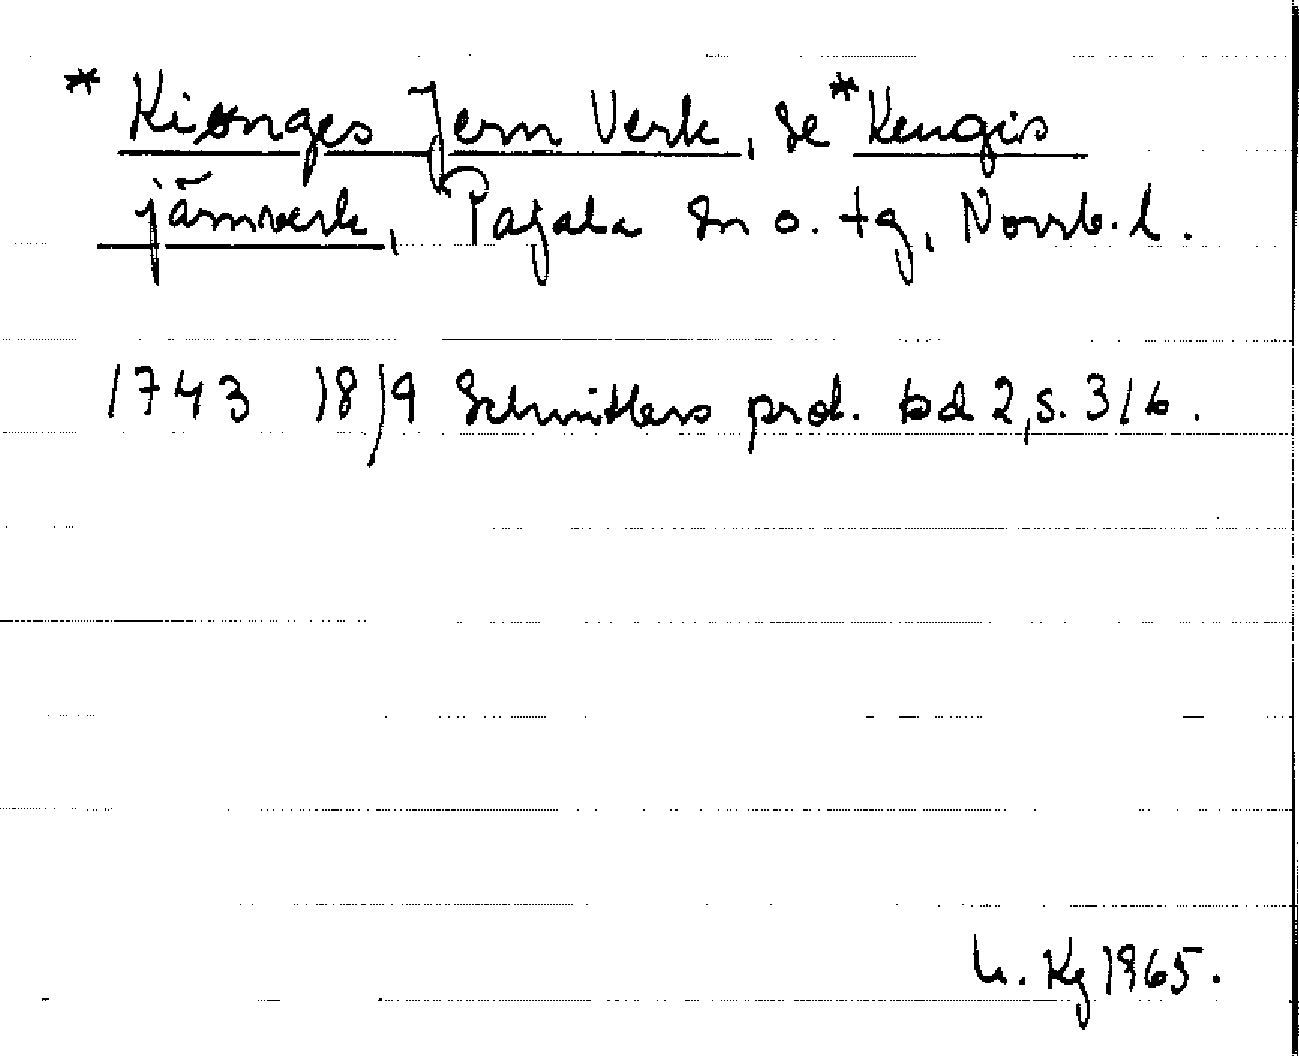 * Kiönges Jern Verk, se * Kengis
järnverk, Pajala sn o. tg, Norrb. l.
1743 18/9 Schnitlers prot. bd 2, s. 316.
U. Kg 1965.